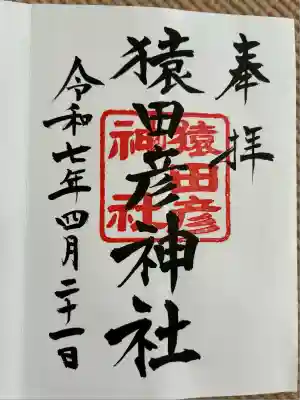 奉拝
猿田彦神社
猿田彦
神社
令和七年四月二十一日